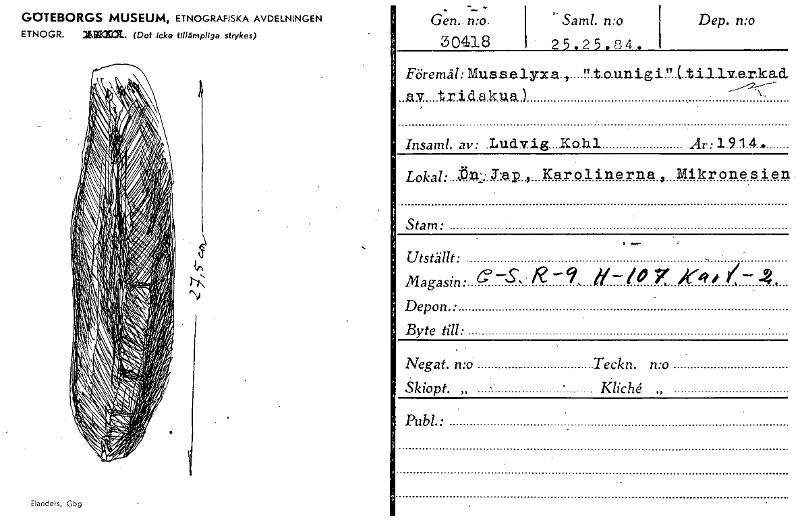 GÖTEBORGS MUSEUM, ETNOGRAFISKA AVDELNINGEN
ETNOGR. (Det icke tillämpliga strykes)
27,5 cm
Elanders, Gbg
Gen. n:o Saml. n:o Dep. n:o
30418 25.25.84.
Föremål: Musselyxa, "tounigi" (tillverkad
av tridakua)
Insaml. av: Ludvig Kohl År: 1914.
Lokal: Ön Jap, Karolinerna, Mikronesien
Stam:
Utställt:
Magasin: G-S. R-9. H-107. Kart.-2.
Depon.:
Byte till:
Negat. n:o Teckn. n:o
Skiopt. „ Kliché „
Publ.: